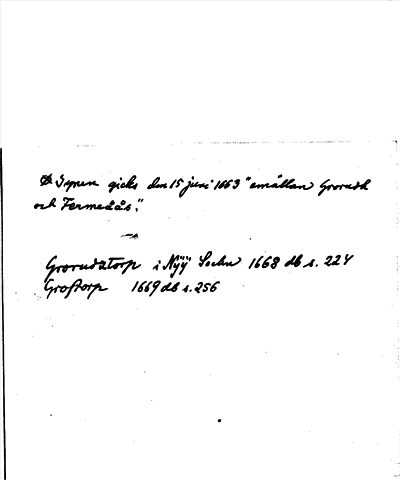 Synen gicks den 15 juni 1663 "emällan Grorudh
och Fermedås."
Grorudztorp i Nÿÿ Sochn 1668 db s. 224
Groftorp 1669 db s. 256